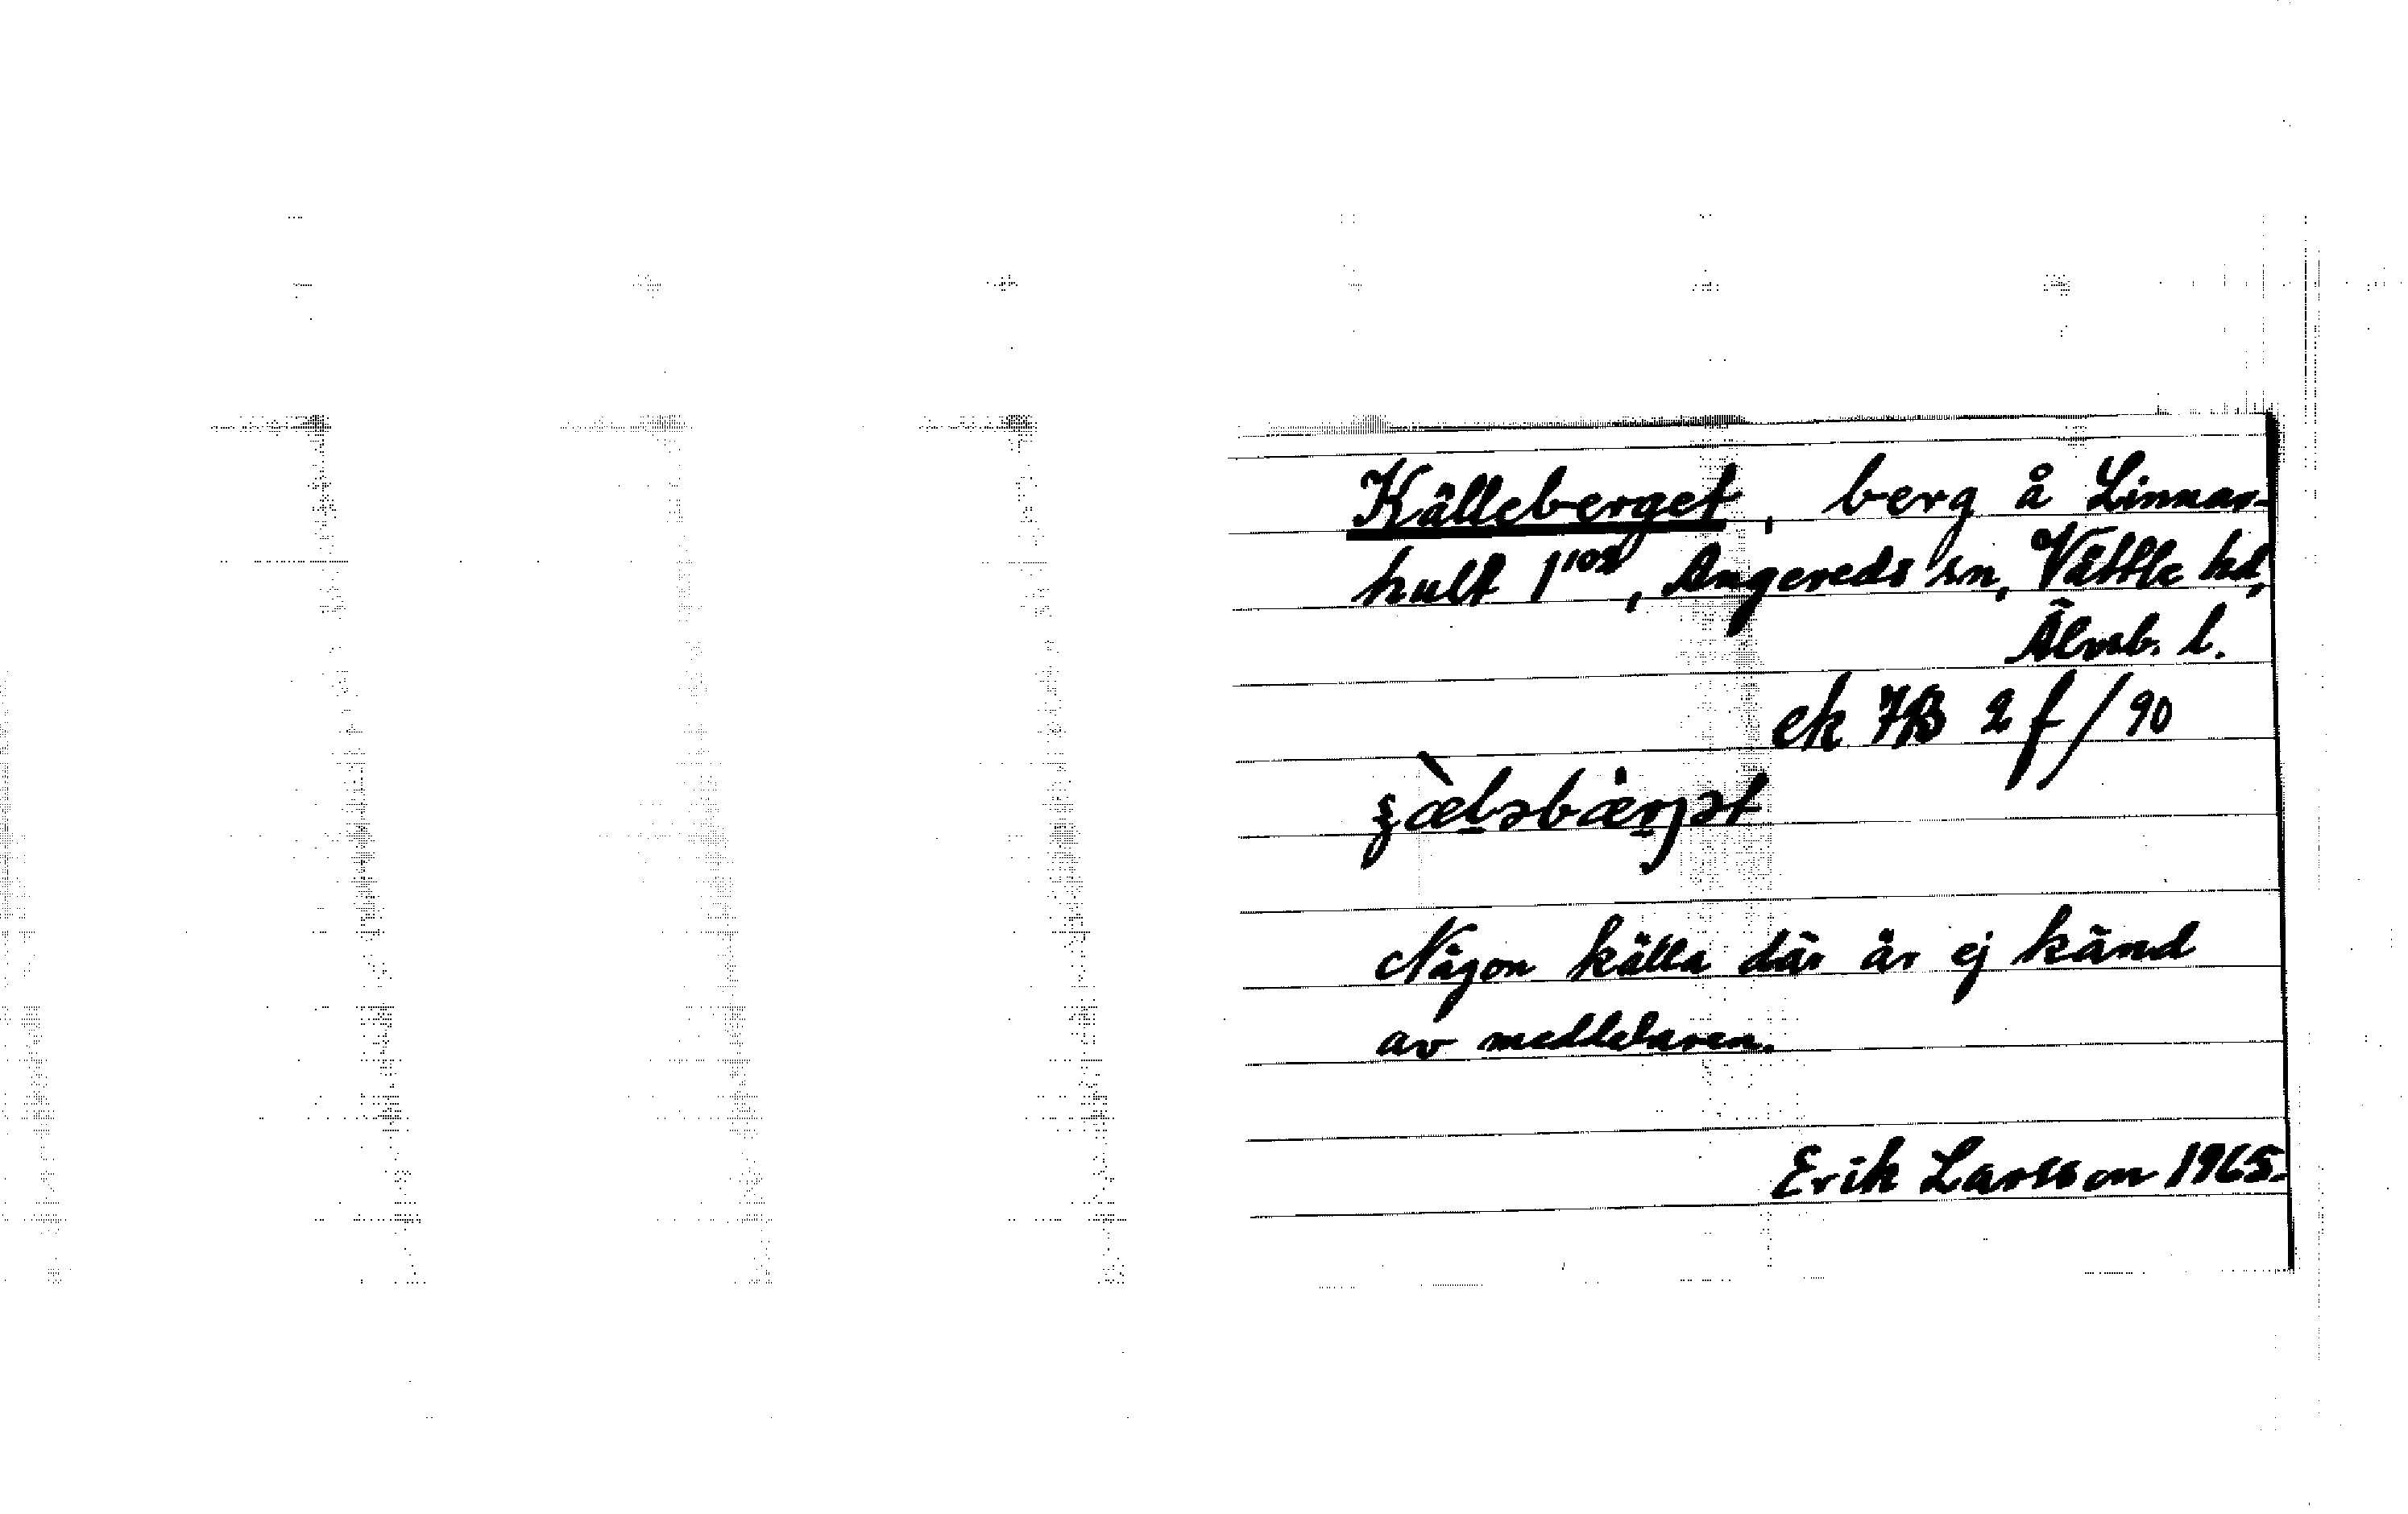 Källeberget, berg å Linnar-
hult 1¹⁰², Angereds sn, Vättle hd,
Älvsb. l.
ek 7B 2 f / 90
Någon källa där är ej känd
av meddelaren.
Erik Larsson 1965.